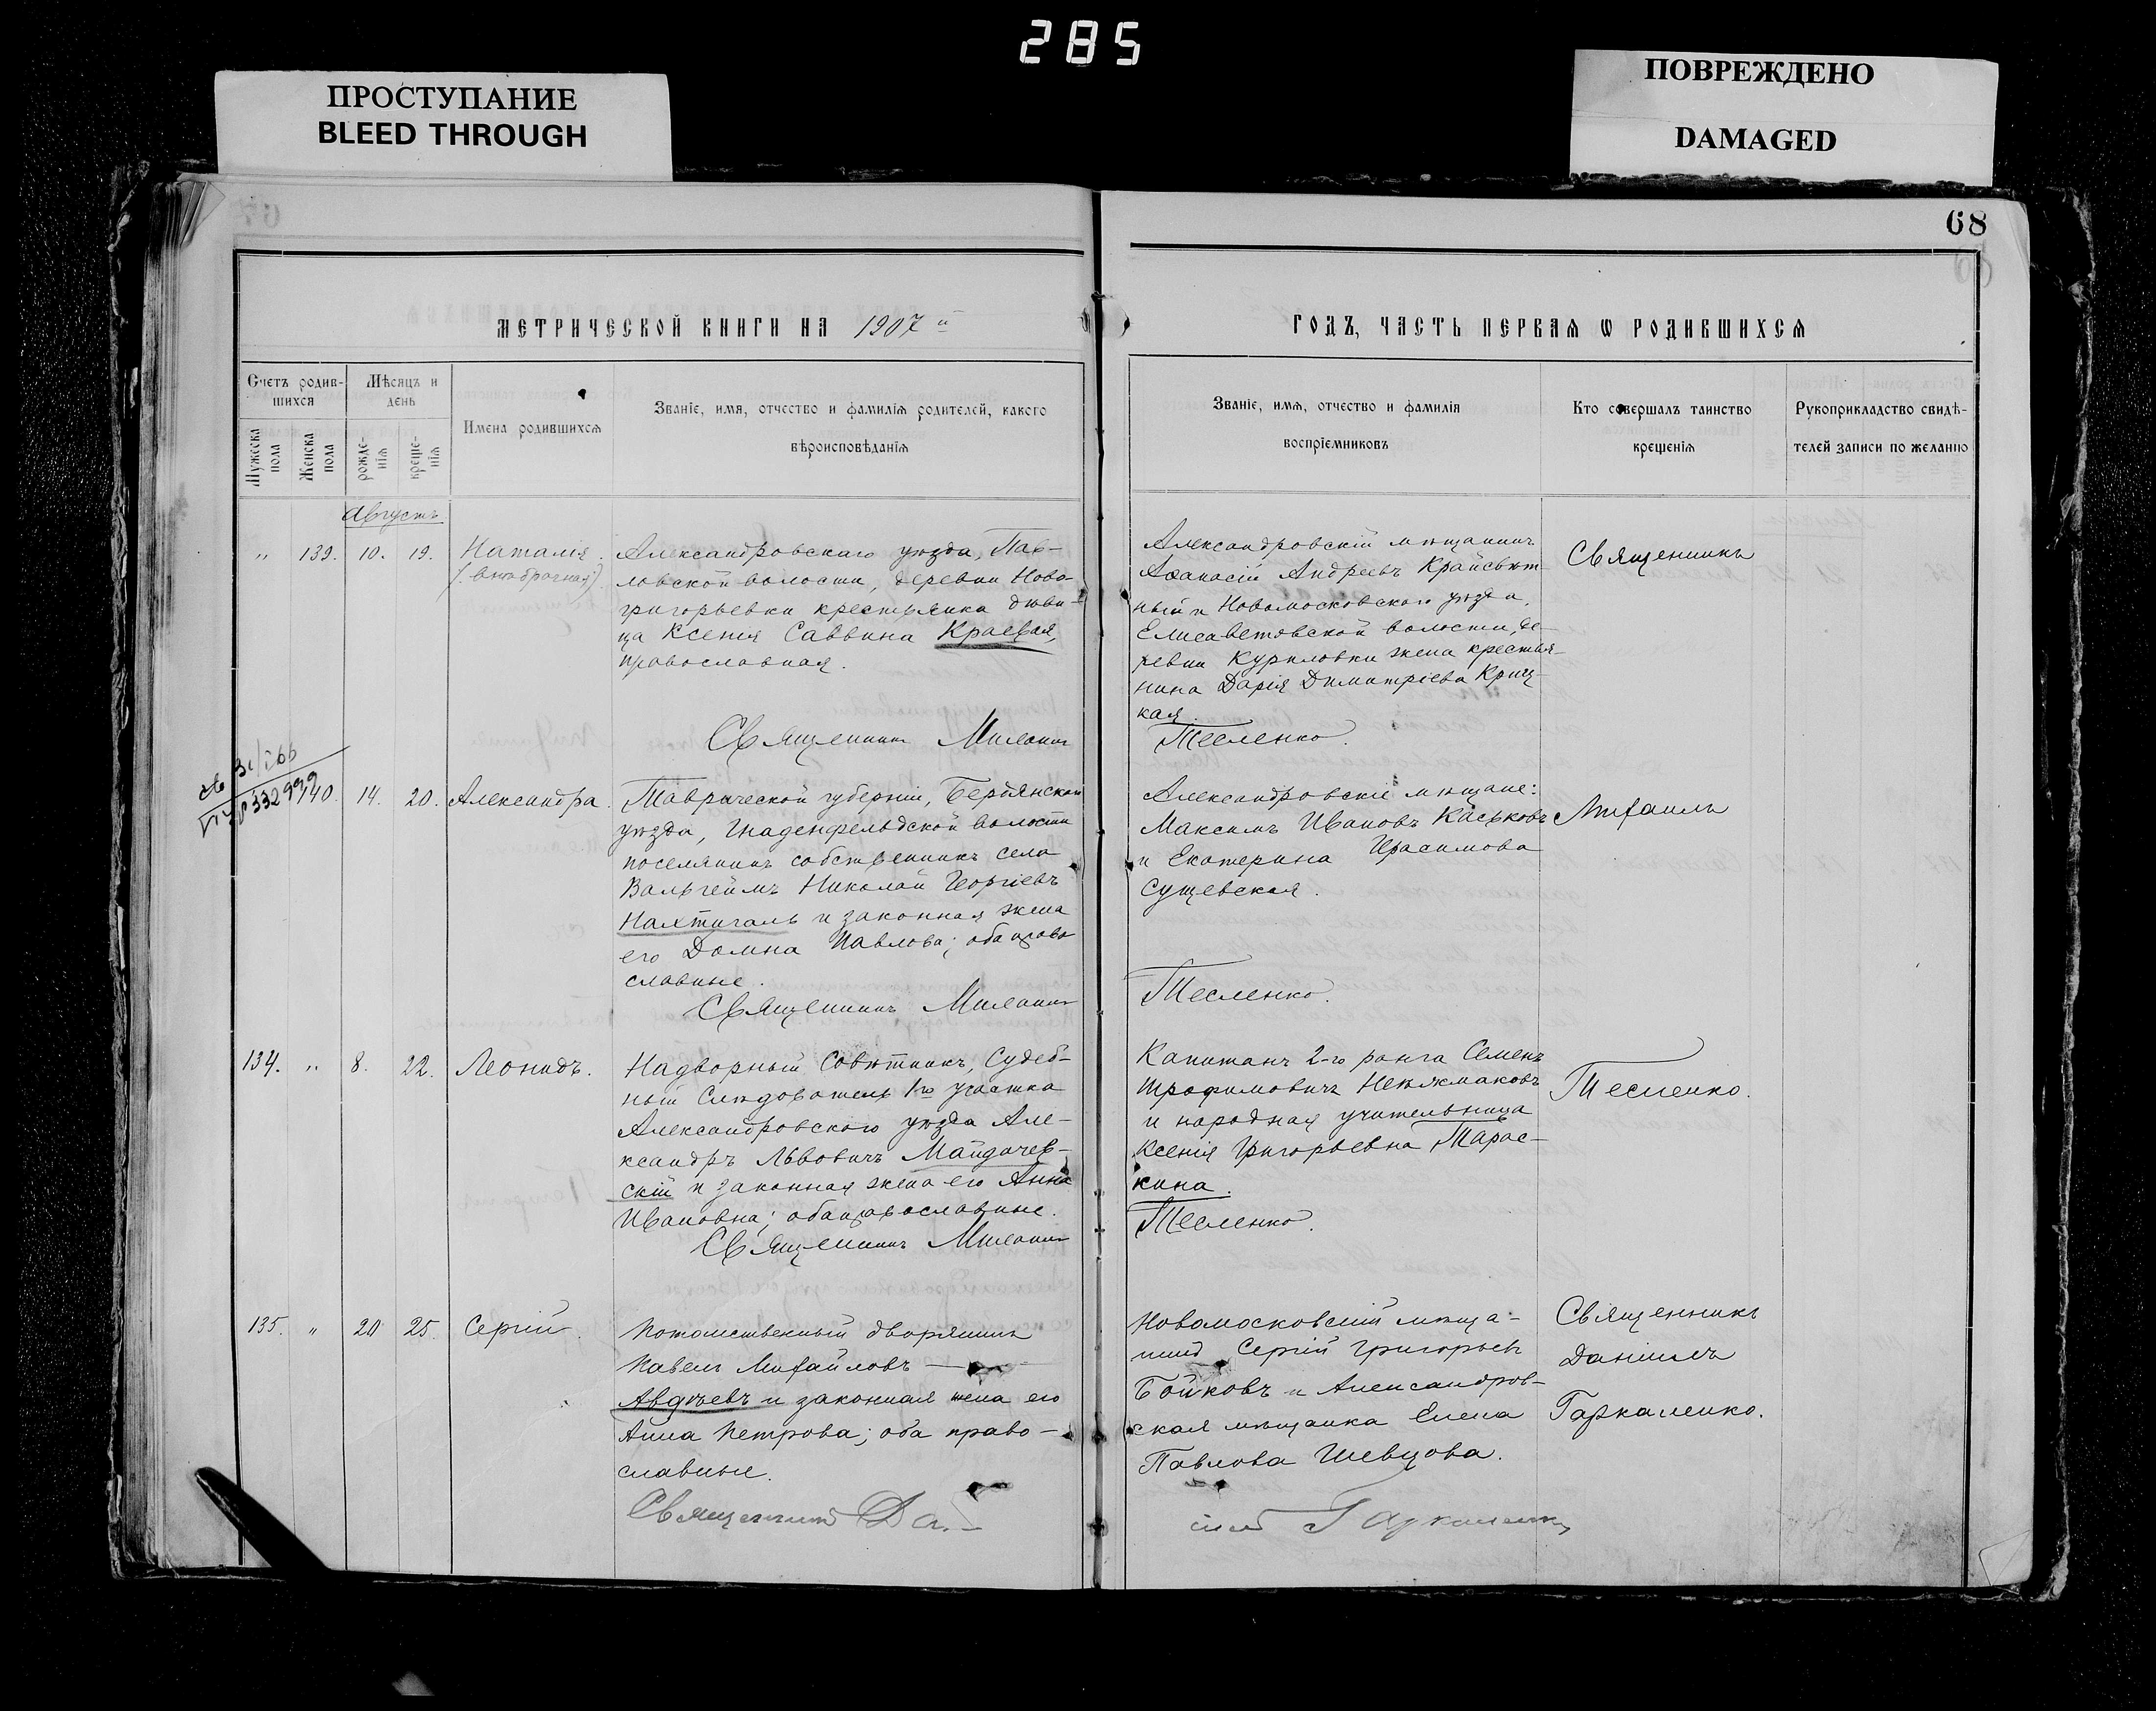 285
ПРОСТУПАНИЕ
BLEED THROUGH
ПОВРЕЖДЕНО
DAMAGED
68
МЕТРИЧЕСКОЙ КНИГИ НА 1907 й
ГОДЪ, ЧАСТЬ ПЕРВАЯ Ѡ РОДИВШИХСЯ
Счетъ родив-
шихся
Мѣсяцъ и
день
Мужеска
пола
Женска
пола
рожде-
нія
креще-
нія
Имена родившихся
Званіе, имя, отчество и фамилія родителей, какого
вѣроисповѣданія
Званіе, имя, отчество и фамилія
воспріемниковъ
Кто совершалъ таинство
крещенія
Рукоприкладство свидѣ-
телей записи по желанію
Августъ
" 139. 10. 19. Наталія.
(внѣбрачная)
Александровскаго уѣзда, Пав-
ловской волости, деревни Ново-
григорьевки крестьянка дѣви-
ца Ксенія Саввина Краевая,
православная.
Священникъ
Александровскій мѣщанинъ
Аѳанасій Андреевъ Крайсвѣт-
ный и Новомосковскаго уѣзда,
Елисаветовской волости, де-
ревни Куриловки жена крестья-
нина Дарія Димитріева Криц-
кая.
Тесленко.
Священникъ
140. 14. 20. Александра.
Таврической губерніи, Бердянскаго
уѣзда, Гнаденфельдской волости
поселянинъ собственникъ села
Вальгеймъ Николай Георгіевъ
Нахтигаль и законная жена
его Домна Павлова; оба право
славные.
Священникъ
Александровскіе мѣщане:
Максимъ Ивановъ Каськовъ
и Екатерина Герасимова
Сущевская.
Тесленко.
Михаилъ
134. " 8. 22. Леонидъ.
Надворный Совѣтникъ, Судеб-
ный Слѣдователь 1го участка
Александровскаго уѣзда Але-
ксандръ Львовичъ Майдачев-
скій и законная жена его Анна
Ивановна; оба православные.
Священникъ
Капитанъ 2-го ранга Семенъ
Трофимовичъ
и народная учительница
Ксенія Григорьевна Марас-
кина.
Тесленко.
Тесленко.
135. " 20 25. Сергій.
Потомственный дворянинъ
Павелъ Михайловъ —
Авдѣевъ и законная жена его
Анна Петрова; оба право-
славные.
Священникъ
Новомосковскій мѣща-
нинъ Сергій Григорьевъ
Бойковъ и Александров-
ская мѣщанка Елена
Павлова Шевцова.
Гаркаленко
Священникъ
Даніилъ
Гаркаленко.